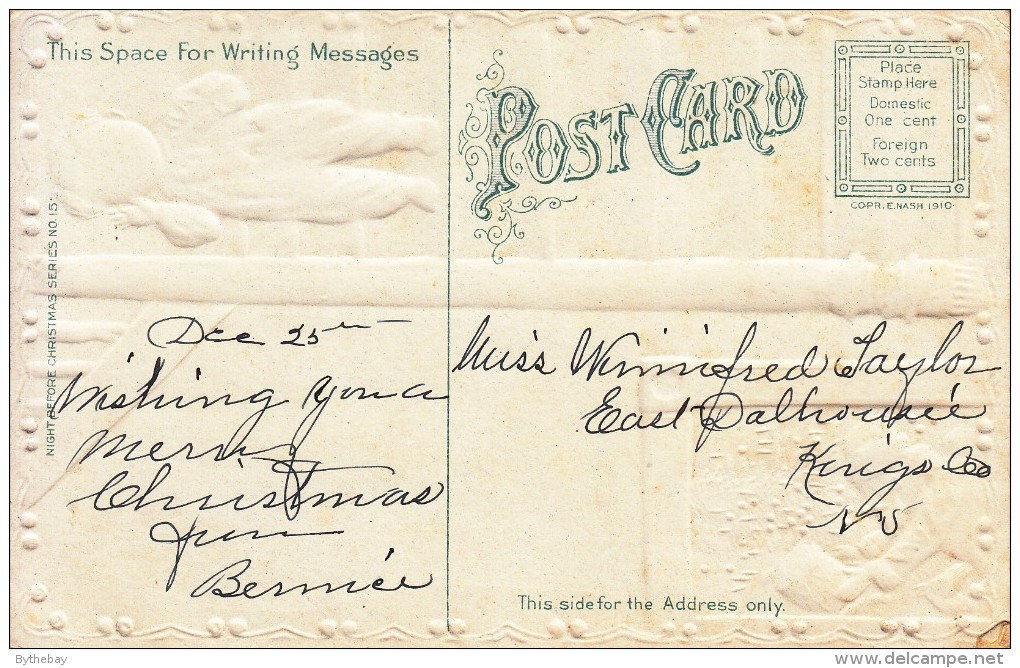 This Space For Writing Messages
POST CARD
Place
Stamp Here
Domestic
One cent
Foreign
Two cents
COPR. E. NASH 1910
NIGHT BEFORE CHRISTMAS SERIES NO. 15.
Dec 25th
Wishing you a
Merry
Christmas
from
Bernice
Miss Winnifred Taylor
East Dalhousie
Kings Co
NS
This side for the Address only.
Bythebay
delcampe.net